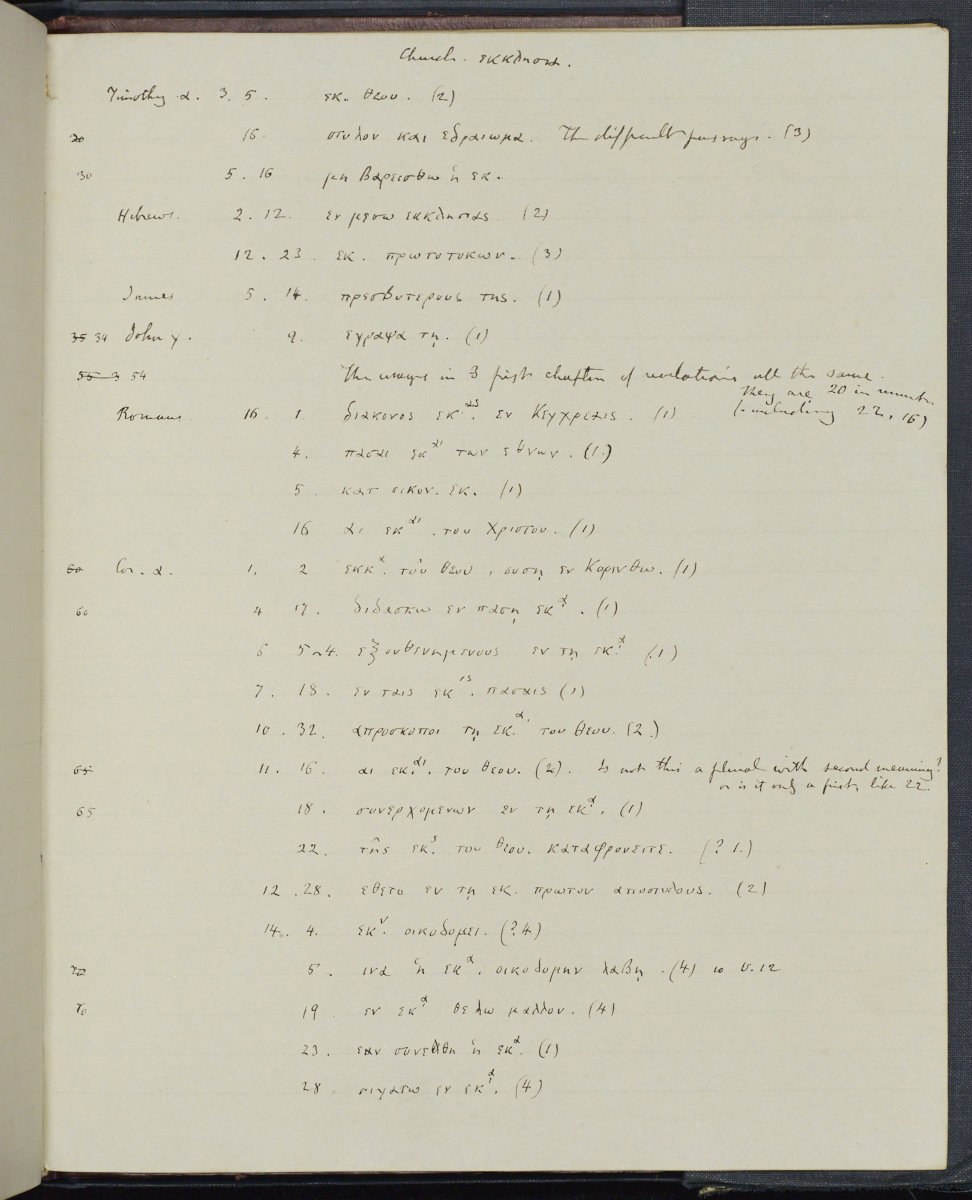 Church. εκκλησια.
Timothy α. 3. 5. εκ. θεου. (2)
30 16. στυλον και εδραιωμα. The difficult passage. (3)
30 5. 16 μη βαρεισθω ἡ εκ.
Hebrews. 2. 12. εν μεσω εκκλησιας (2)
12. 23. εκ. πρωτοτοκων. (3)
James 5. 14. πρεσβυτερους της. (1)
35 34 John γ. 9. εγραψα τῃ. (1)
55 3 54 The usages in 3 first chapters of revelations all the same.
They are 20 in number
(including 22, 16)
Romans 16. 1. διακονος εκ.ας εν Κεγχρεαις. (1)
4. πασαι εκαι των εθνων. (1)
5. κατ οικον. εκ. (1)
16 αι εκαι. του Χριστου. (1)
60 Cor. α. 1. 2 εκκα. του θεου, ουσῃ εν Κορινθω. (1)
60 4 17. διδασκω εν πασῃ εκ.α. (1)
6 5~4. εξουθενημενους εν τῃ εκ.α (1)
7. 18. εν ταις εκις. πασαις (1)
10. 32. απροσκοποι τῃ εκ.α. του θεου. (2)
65 11. 16. αι εκ.αι. του θεου. (2). Is not this a plural with second meaning?
or is it only a first, like 22
65 18. συνερχομενων εν τῃ εκα. (1)
22. της εκ.ς του θεου. καταφρονειτε. (? 1.)
12. 28. εθετο εν τῃ εκ. πρωτον αποστολους. (2)
14. 4. εκν. οικοδομει. (?4)
70 5. ινα ἡ εκα. οικοδομην λαβῃ. (4) so v. 12
70 19. εν εκ.α θελω μαλλον. (4)
23. εαν συνελθη ἡ εκα. (1)
28. σιγατω εν εκ.α. (4)